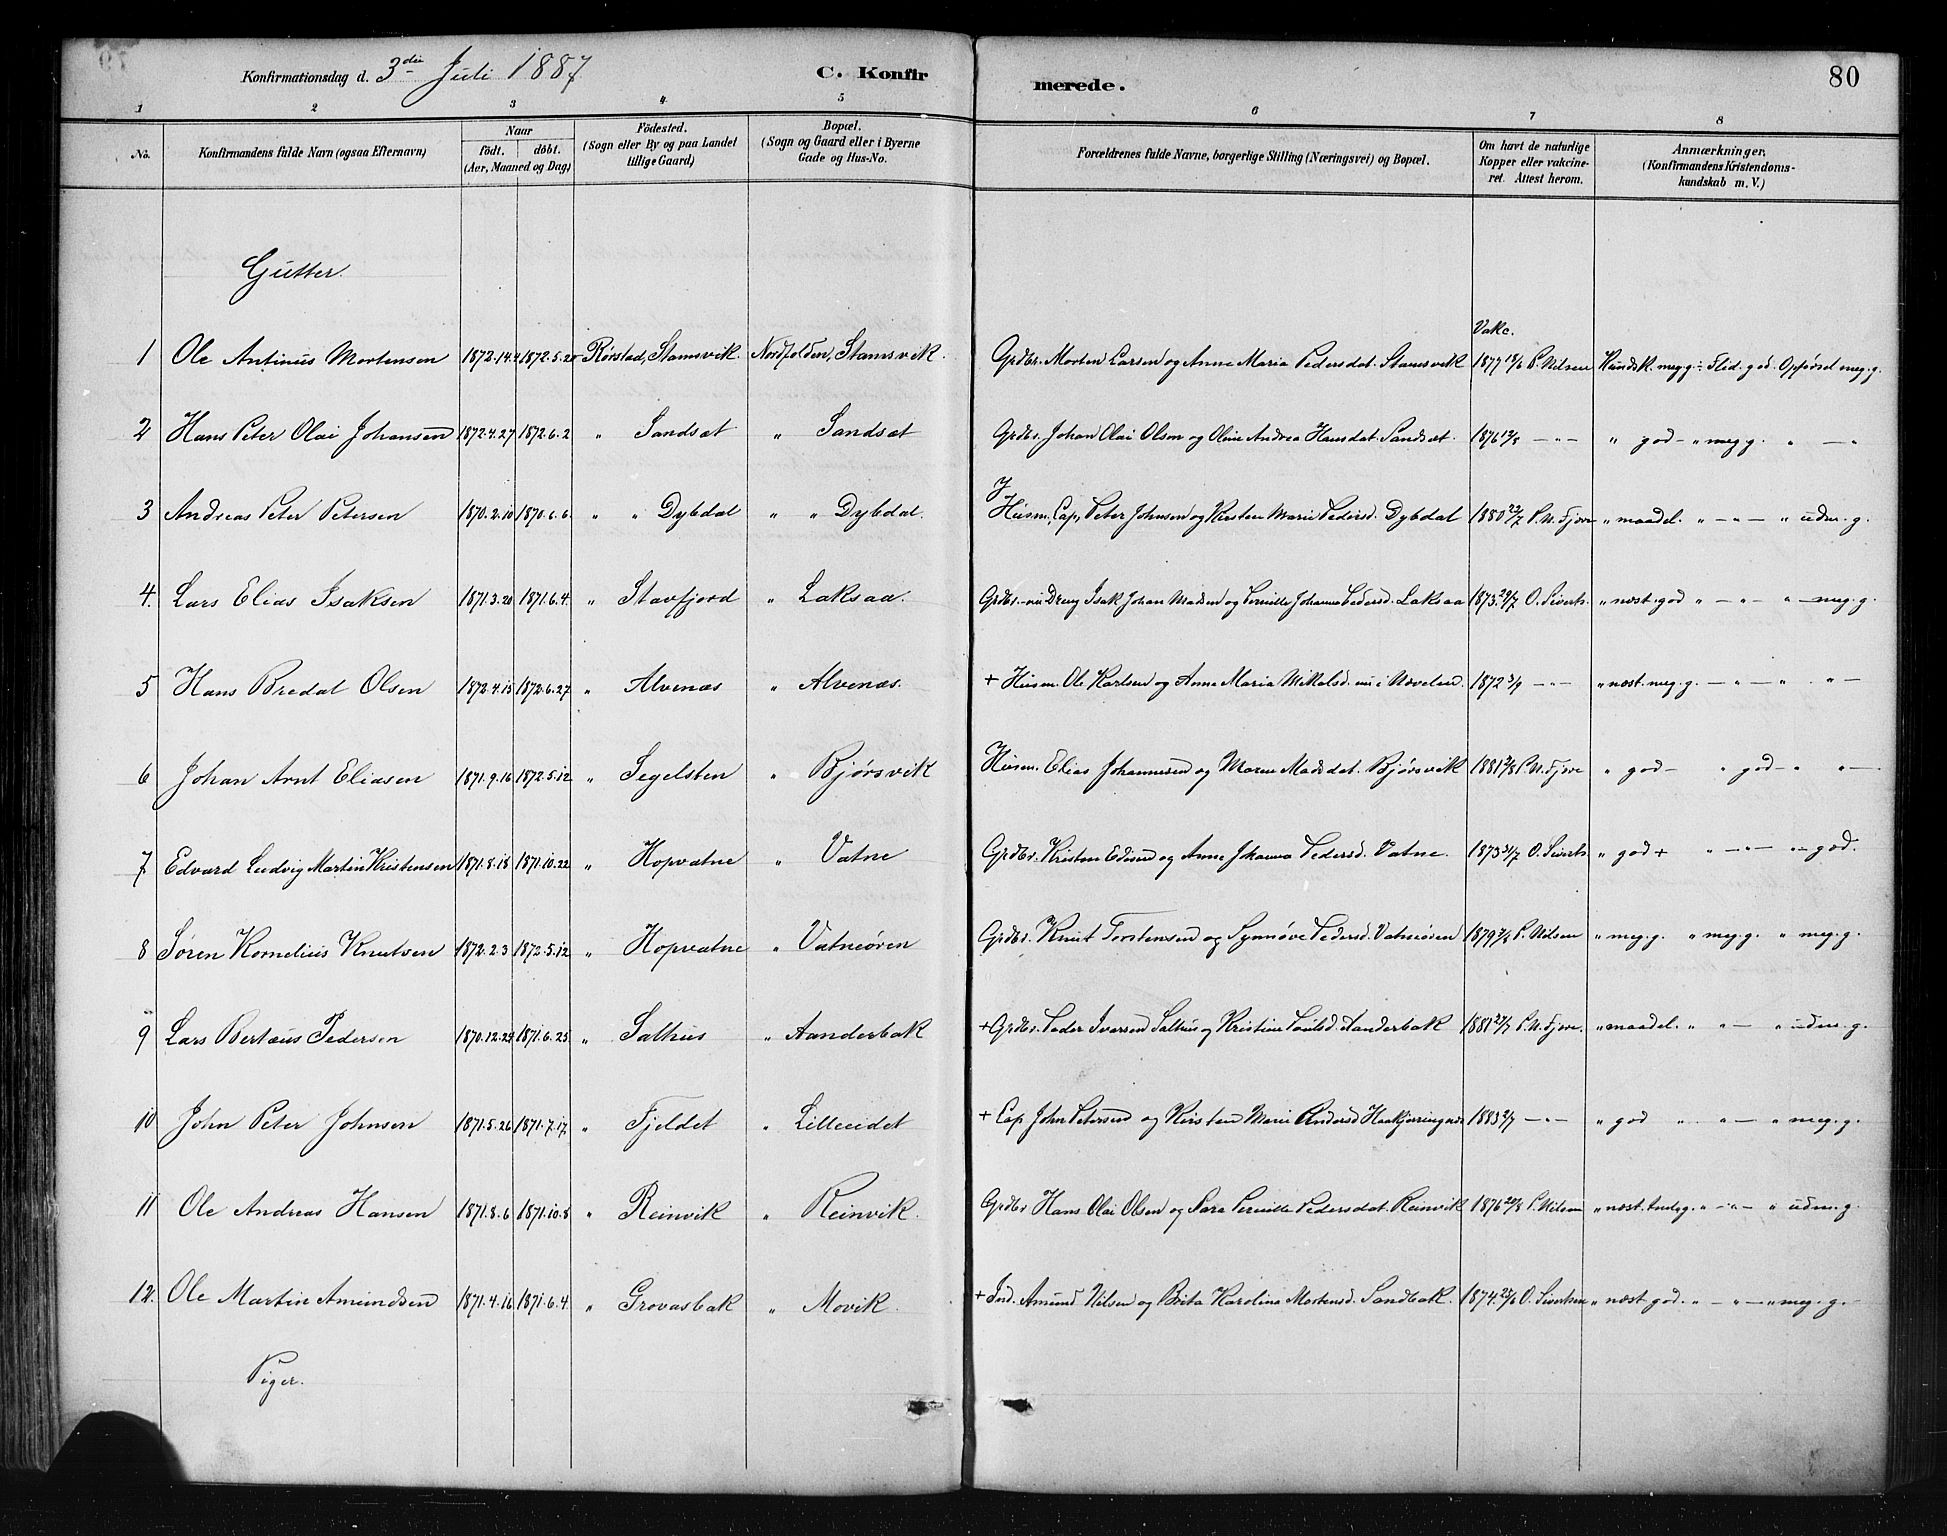 Konfirmationsdag d. 3die Juli 1887 C. Konfirmerede. 80
1 2 3 4 5 6 7 8
No. Konfirmandens fulde Navn (ogsaa Efternavn) Naar födt. döbt. (Aar, Maaned og Dag) Födested. (Sogn eller By og paa Landet tillige Gaard) Bopæl. (Sogn og Gaard eller i Byerne Gade og Hus-No. Forældrenes fulde Navne, borgerlige Stilling (Næringsvei) og Bopæl. Om havt de naturlige Kopper eller vakcineret. Attest herom. Anmærkninger, (Konfirmandens Kristendomskundskab m. V.)
Gutter.
Vakc.
1 Ole Antinus Mortensen 1872.14.4 1872.5.20 Rørstad, Stamsvik. Nordfolden, Stamsvik. Grdbr. Morten Larsen og Anne Maria Pedersdat. Stamsvik 1877 18/6 P. Nilsen Kundsk. meg. g. Flid. god. Opførsel meg. g.
2 Hans Peter Olai Johansen 1872.4.27 1872.6.2 " Sandsæt " Sandsæt Grdbr. Johan Olai Olsen og Oline Andrea Hansdat. Sandsæt. 1876 12/8 — " — " god — " meg g. " — "
3 Andreas Peter Petersen 1870.2.10 1870.6.6. " " Dybdal " " Dybdal. Husm., Cap, Peter Johnsen og Kirsten Marie Pedersd. Dybdal 1880 22/7 P. N. Fjore " maadel. " — " — " udm. g.
4. Lars Elias Isaksen 1871.3.20 1871.6.4. " Stavfjord " Laksaa. Grdbr. nu Dreng Isak Johan Madsen og Pernille Johanna Pedersd. Laksaa 1873. 29/7 O. Siverts. " næst. god " — " " — meg. g.
5 Hans Bredal Olsen 1872.4.15 1872.6.27 " Alvenæs " Alvenæs. + Husm. Ole Karlsen og Anne Maria Mikalsd. nu i Nævelsn. 1872 3/9 — " — " næst. meg. g. — " — " " —
6 Johan Arnt Eliasen 1871.9.16 1872.5.12 " Segelsten " Bjørsvik Husm. Elias Johannesen og Maren Madsdat. Bjørsvik 1881 2/8 P. N. Fjore " god — " god — " " —
7 Edvard Ludvig Martin Kristensen 1871.8.18 1871.10.22 " Hopvatne " Vatne Grdbr. Kristen Edisen og Anne Johanna Pedersd. Vatne. 1873 31/7 O. Siverts. " god + " — " — " — god.
8 Sören Kornelius Knutsen 1872.2.3 1872.5.12 " Hopvatne " Vatneören Grdbr. Knut Torstensen og Synnöve Pedersd. Vatneören 1879 2/8 P. Nilsen " meg. g. " meg. g. " meg. g.
9 Lars Bertæus Pedersen 1870.12.29 1871.6.25 " Salhus " Aanderbak + Grdbr. Peder Iversen Salhus og Kristine Paulsd. Aanderbak 1881 27/7 P. N. Fjore. " maadel. " " — " udm. g.
10 John Peter Johnsen 1871.5.26 1871.7.17. " Fjeldet " Lilleeidet + Cap John Petersen og Kirsten Marie Andersd Haakjerringnæs 1883 2/7 — " — " god " " — " meg. g.
11 Ole Andreas Hansen 1871.8.6 1871.10.8 " Reinvik " Reinvik. Grdbr Hans Olai Olsen og Sara Pernille Pedersdat. Reinvik 1876 20/8 P. Nilsen " næst. g. " — " — " udm. g.
12. Ole Martin Amundsen 1871.4.16 1871.6.4. " Grovasbak " Movik. + Ind. Amund Nilsen og Brita Karolina Mortensd. Sandbak. 1874. 23/6 O. Sivertsen " næst god. " — " — " meg. g.
Piger.